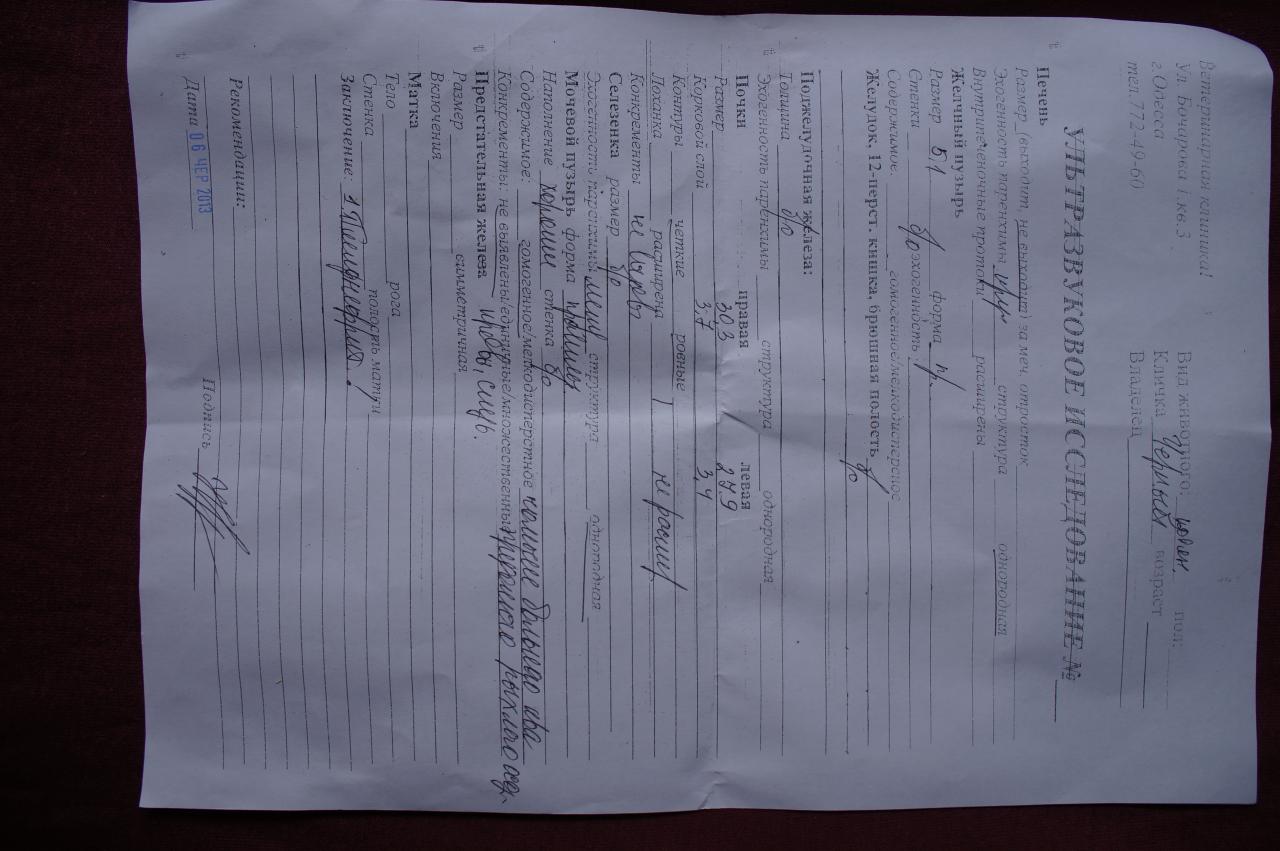 Ветеринарная клиника!
Ул. Бочарова 1.кв.3
г.Одесса
тел.772-49-60
Вид животного: пол:
Кличка Черныш возраст
Владелец
УЛЬТРАЗВУКОВОЕ ИССЛЕДОВАНИЕ №
Печень
Размер (выходит, не выходит) за меч. отросток
Эхогенность паренхимы структура однородная
Внутрипеченочные протоки расширены
Желчный пузырь
Размер 5,1 форма пр.
Стенки б/о эхогенность
Содержимое: гомогенное/мелкодисперсное
Желудок, 12-перст. кишка, брюшная полость б/о
Поджелудочная железа:
Толщина б/о
Эхогенность паренхимы структура однородная
Почки правая левая
Размер 303 279
Корковой слой 3,7 3,4
Контуры четкие ровные
Лоханка расширена не расшир
Конкременты
Селезенка размер б/о
Эхогенность паренхимы структура однородная
Мочевой пузырь форма
Наполнение хорошее стенка б/о
Содержимое: гомогенное/мелкодисперстное
Конкременты: не выявлены/единичные/множественные рыхлого
Предстательная железа
Размер симметричная
Включения
Матка
Тело рога
Стенка полость матки
Заключение:
Рекомендации:
Дата 06 ЧЕР 2013 Подпись